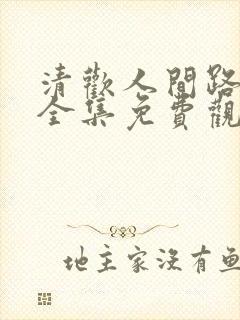 清歡人間路
全集免費觀
地主家沒有鱼